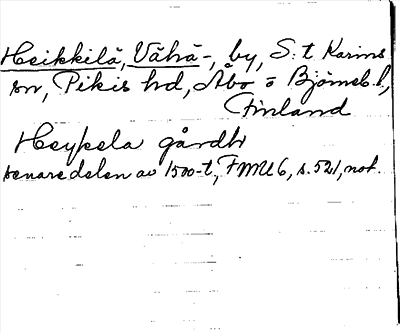 Heikkilä, Vähä-, by, S:t Karins
sn, Pikis hd, Åbo o Björneb. l,
Finland
Heykela gårdh
senare delen av 1500-t, FMU 6, s. 521, not.